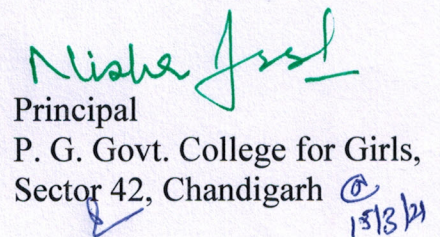 Nisha
Principal
P. G. Govt. College for Girls,
Sector 42, Chandigarh
15/3/21